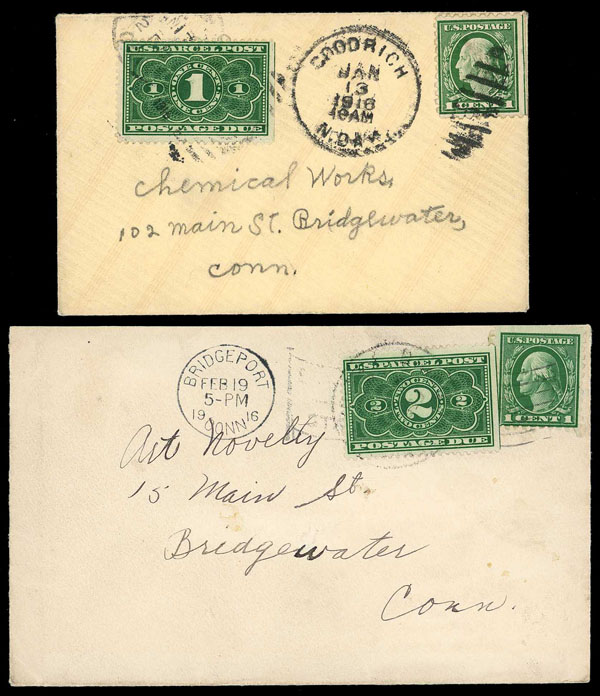 U.S. PARCEL POST
ONE CENT
1 1 1
ONE CENT
POSTAGE DUE
GOODRICH
JAN
13
1916
10AM
N.DAK.
U.S. POSTAGE
1 CENT 1
Chemical Works,
102 Main St. Bridgewater,
Conn.
BRIDGEPORT
FEB 19
5-PM
19 16
CONN
U.S. PARCEL POST
TWO CENTS
2 2 2
TWO CENTS
POSTAGE DUE
U.S. POSTAGE
1 CENT 1
Art Novelty
15 Main St.
Bridgewater
Conn.